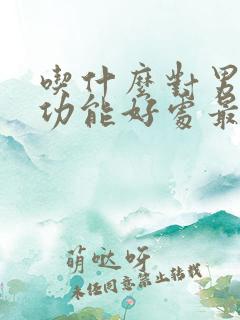 喫什麼對男
功能好處最
萌哒呀
未经同意禁止转载